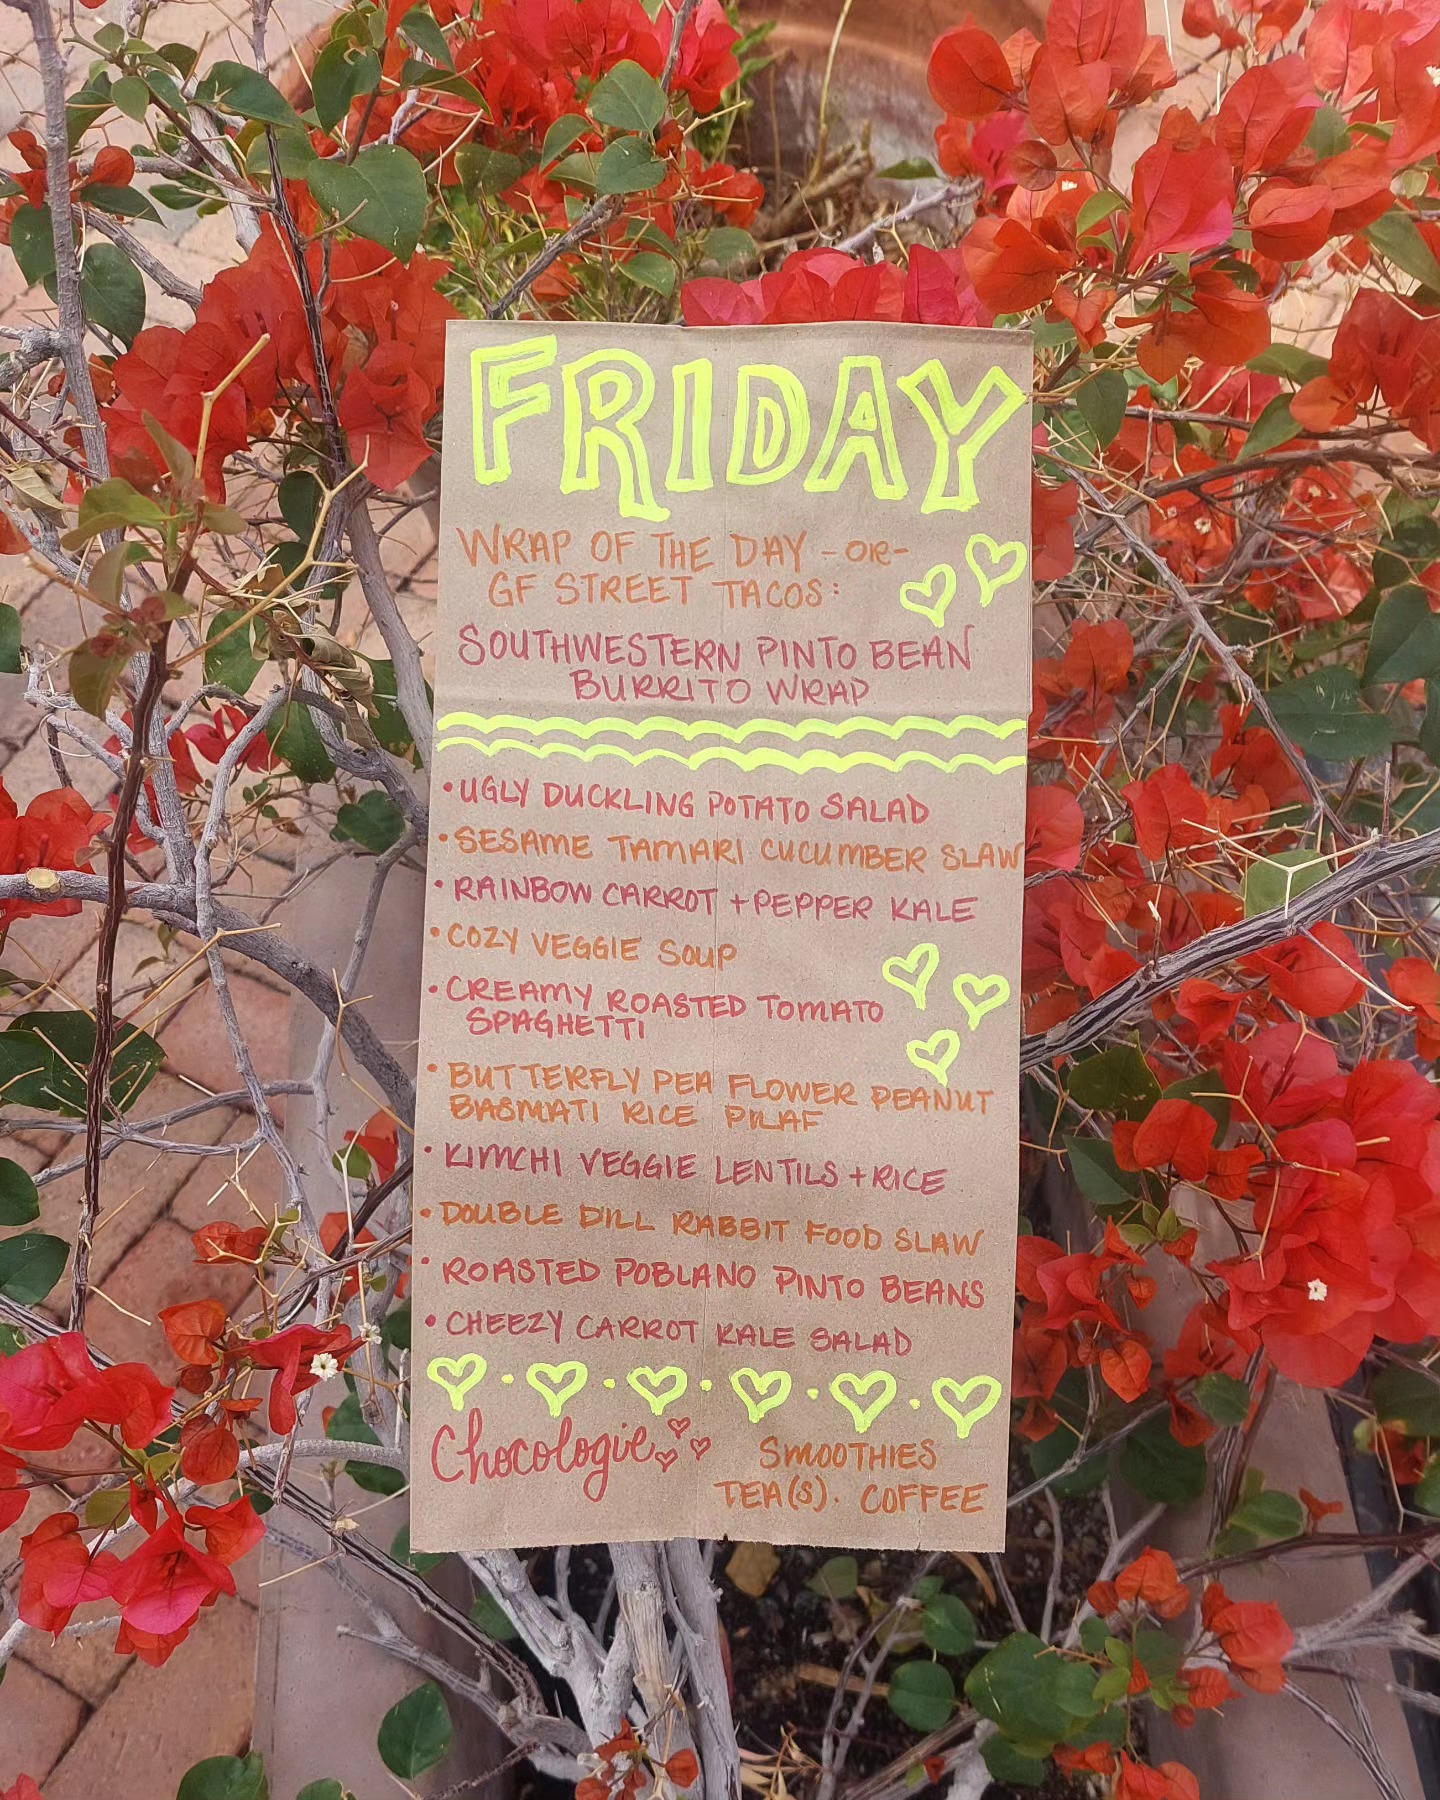 FRIDAY
WRAP OF THE DAY -OR-
GF STREET TACOS:
SOUTHWESTERN PINTO BEAN
BURRITO WRAP
•UGLY DUCKLING POTATO SALAD
•SESAME TAMARI CUCUMBER SLAW
•RAINBOW CARROT + PEPPER KALE
•COZY VEGGIE SOUP
•CREAMY ROASTED TOMATO
SPAGHETTI
•BUTTERFLY PEA FLOWER PEANUT
BASMATI RICE PILAF
•KIMCHI VEGGIE LENTILS + RICE
•DOUBLE DILL RABBIT FOOD SLAW
•ROASTED POBLANO PINTO BEANS
•CHEEZY CARROT KALE SALAD
Chocologie
SMOOTHIES
TEA(S). COFFEE